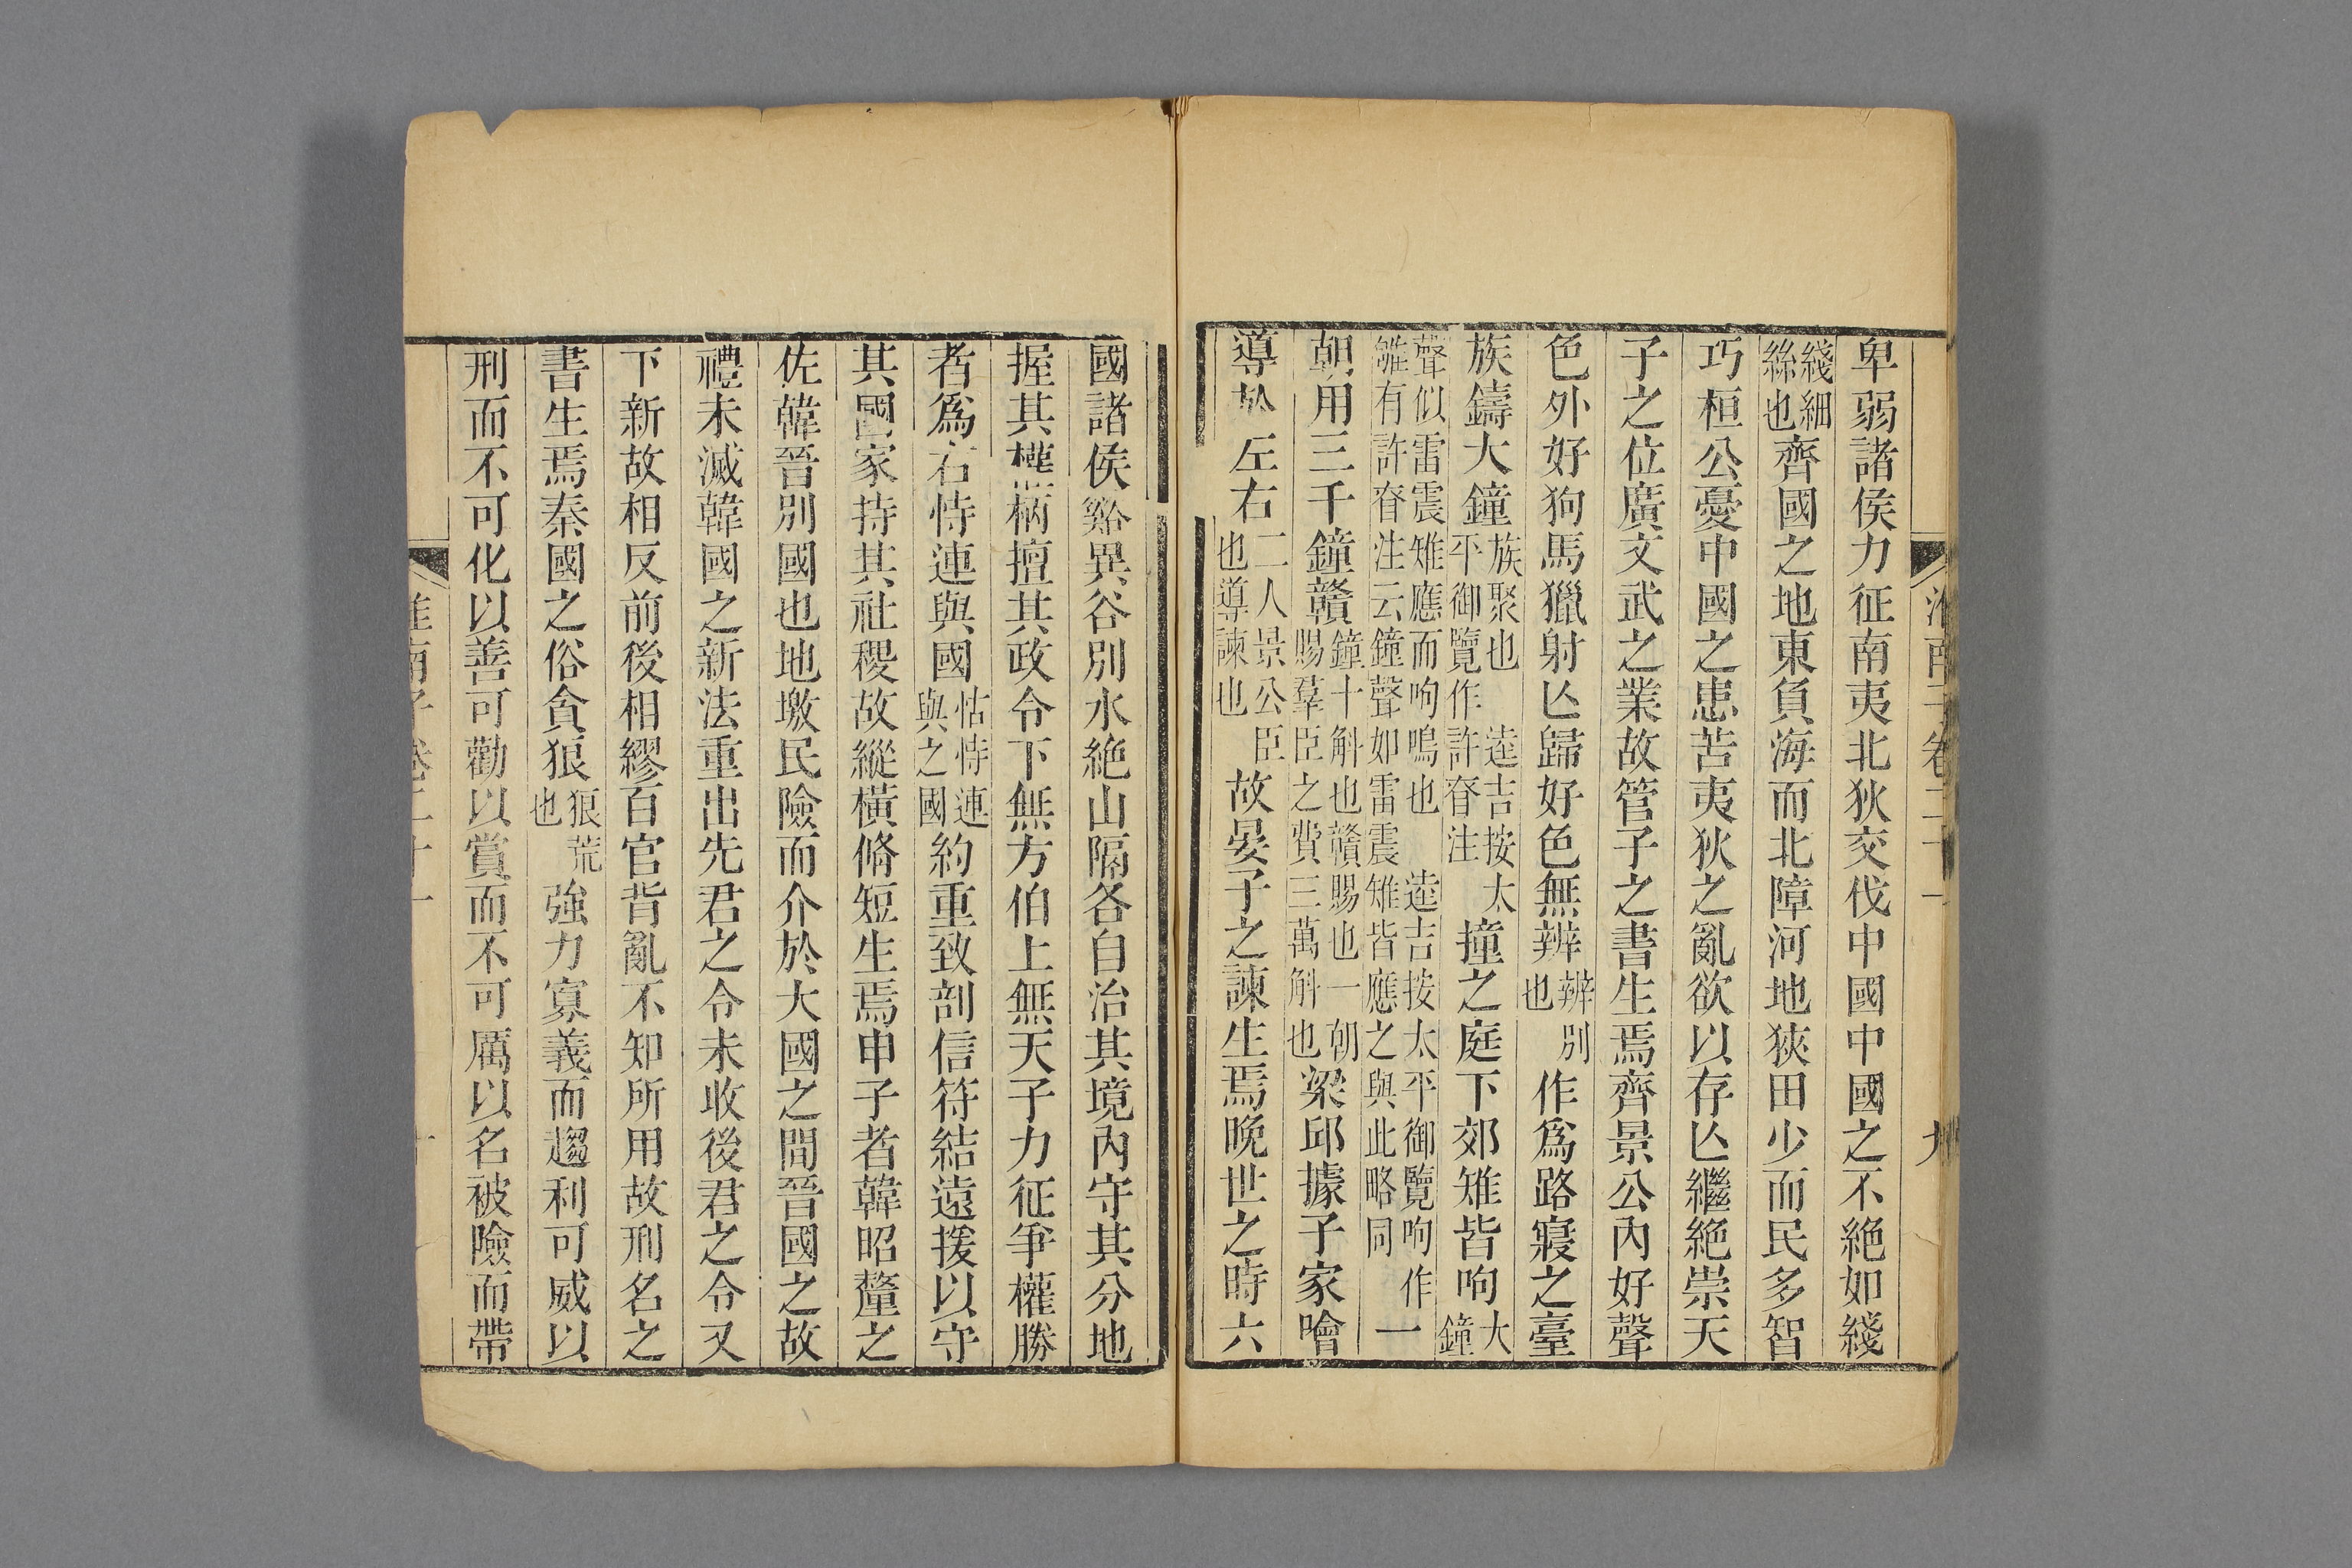 淮南子卷二十一 九
卑弱諸侯力征南夷北狄交伐中國中國之不絶如綫
綫細絲也齊國之地東負海而北障河地狹田少而民多智
巧桓公憂中國之患苦夷狄之亂欲以存亾繼絶崇天
子之位廣文武之業故管子之書生焉齊景公內好聲
色外好狗馬獵射亾歸好色無辨辨別也作爲路寢之臺
族鑄大鐘族聚也 逵吉按太平御覽作許昚注撞之庭下郊雉皆呴大鐘
聲似雷震雉應而呴鳴也 逵吉按太平御覽呴作雊有許昚注云鐘聲如雷震雉皆應之與此略同 一
朝用三千鐘贛鐘十斛也贛賜也一朝賜羣臣之費三萬斛也梁邱據子家噲
導於左右二人景公臣也導諫也故晏子之諫生焉晚世之時六
國諸侯谿異谷別水絶山隔各自治其境內守其分地
握其權柄擅其政令下無方伯上無天子力征爭權勝
者爲右恃連與國怙恃連與之國約重致剖信符結遠援以守
其國家持其社稷故縱橫脩短生焉申子者韓昭釐之
佐韓晉別國也地墽民險而介於大國之間晉國之故
禮未滅韓國之新法重出先君之令未收後君之令又
下新故相反前後相繆百官背亂不知所用故刑名之
書生焉秦國之俗貪狼狼荒也強力寡義而趨利可威以
刑而不可化以善可勸以賞而不可厲以名被險而帶
淮南子卷二十一